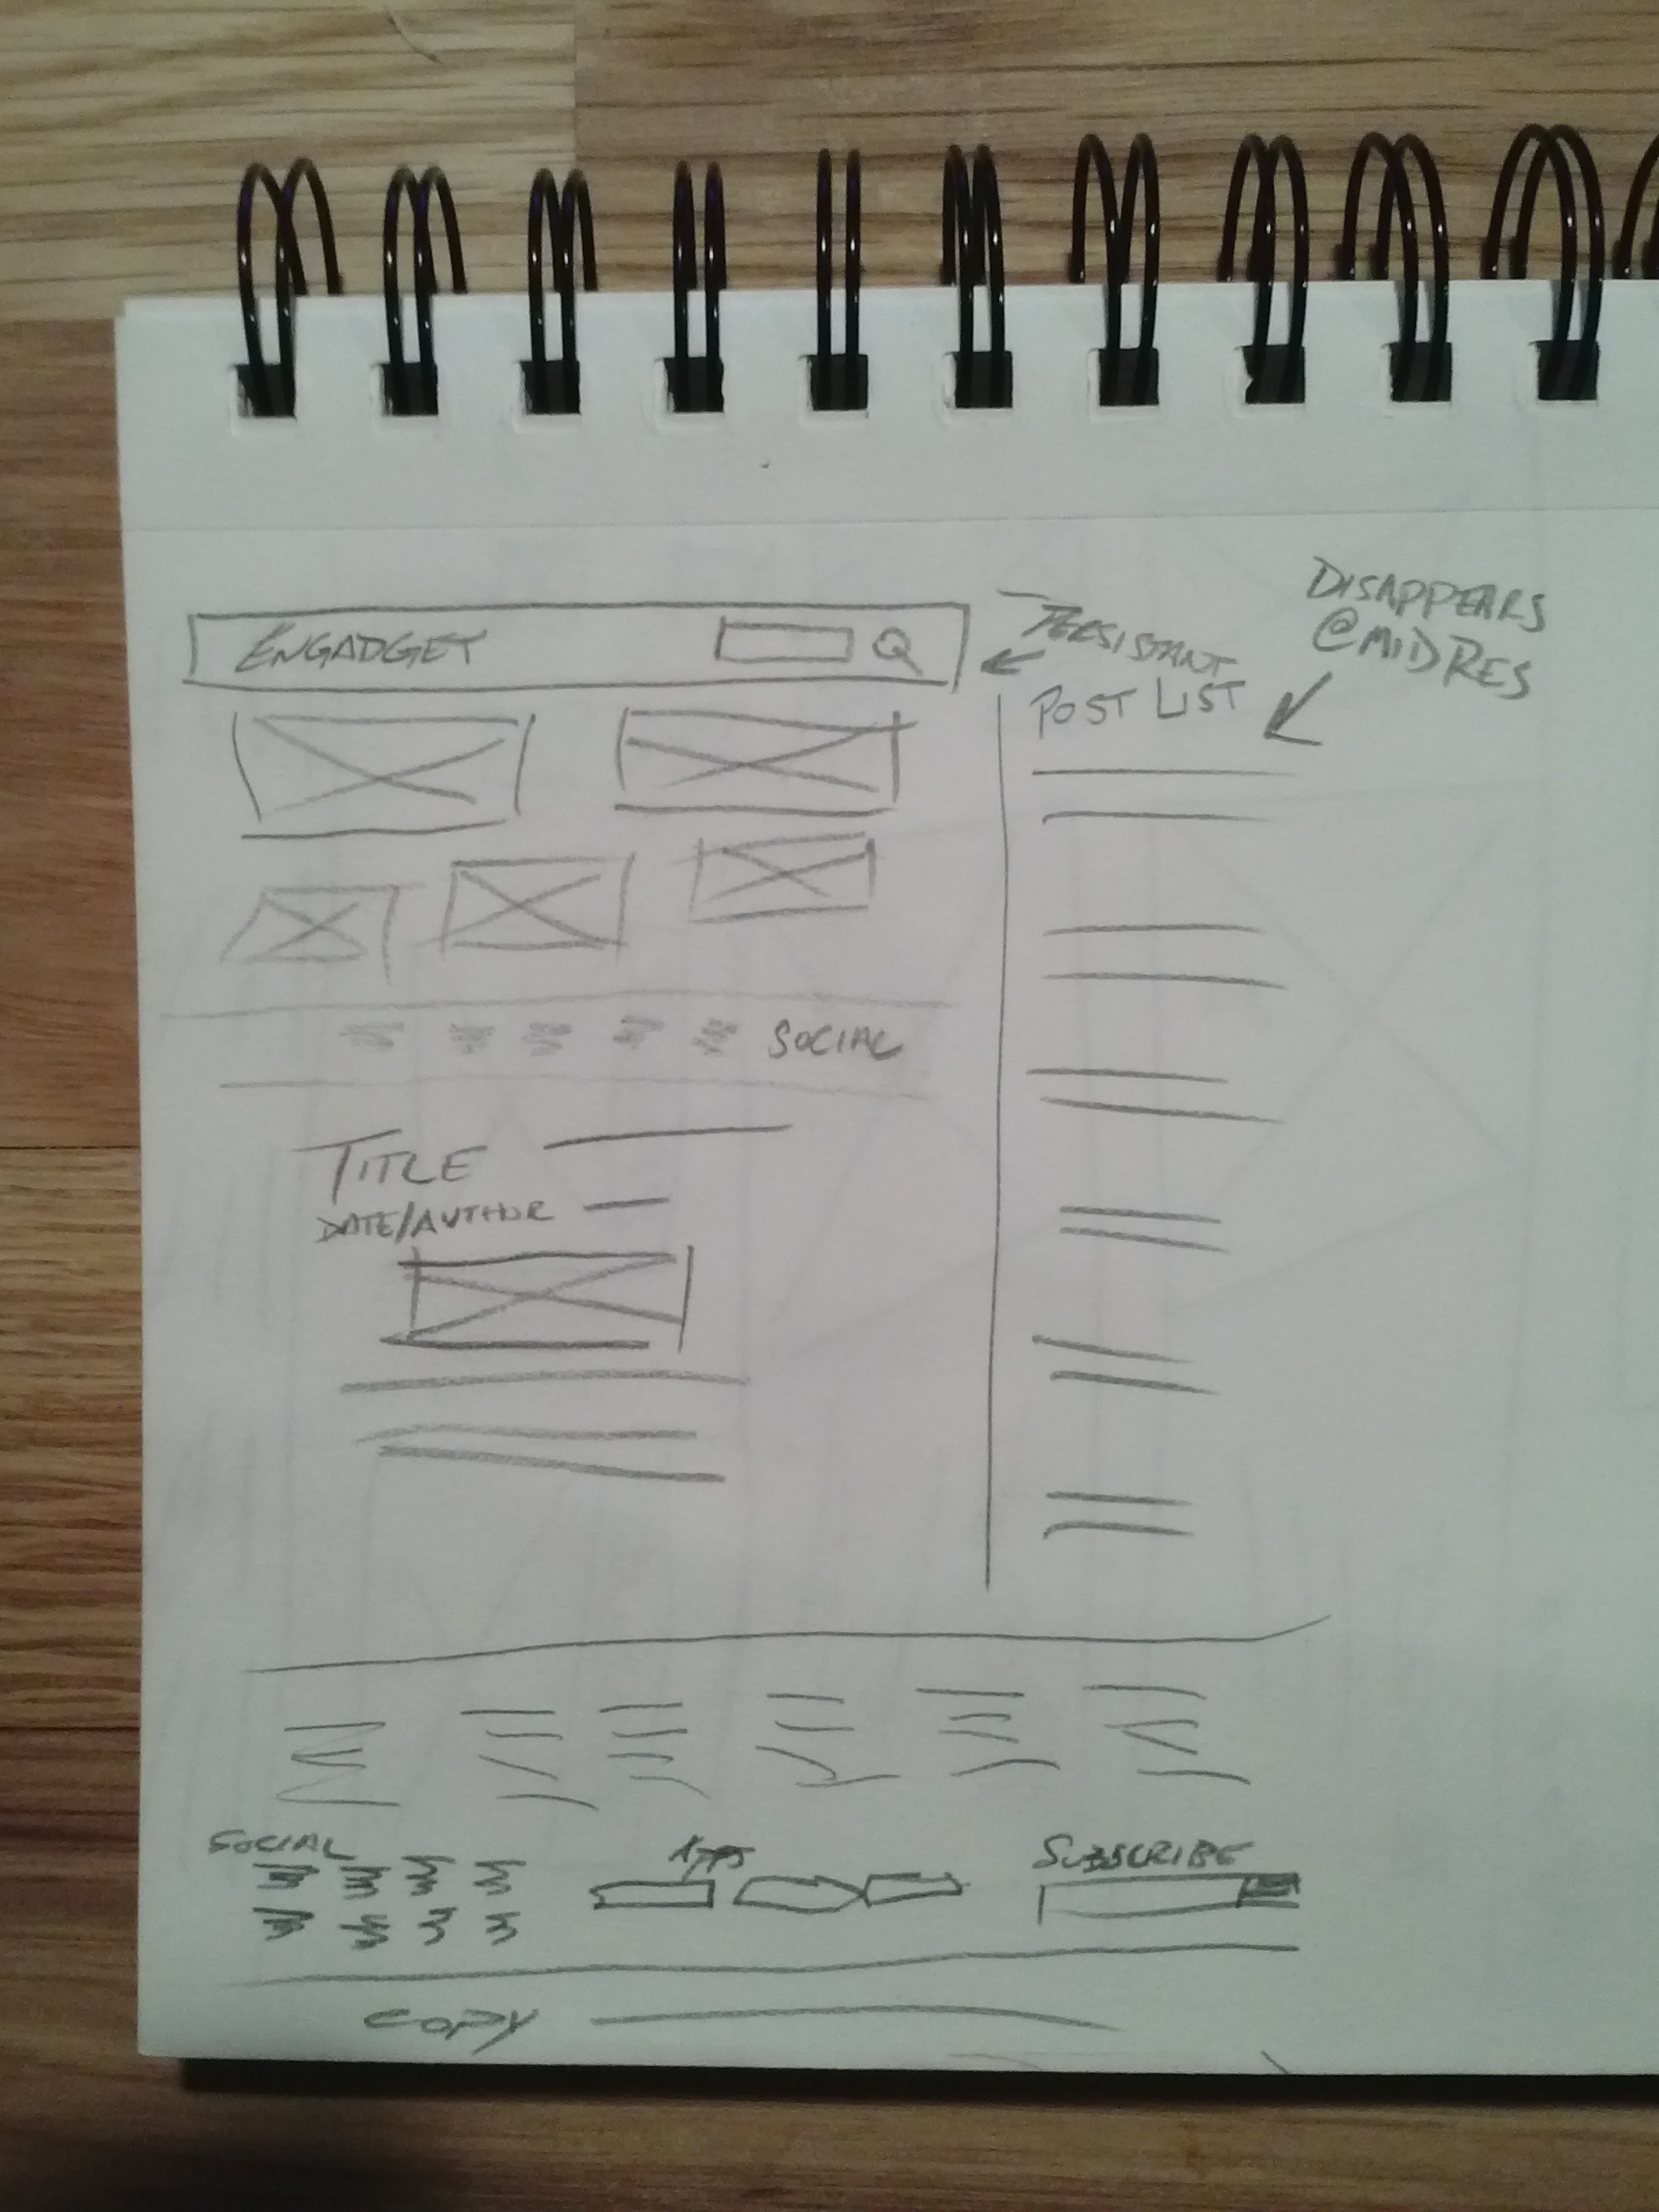 ENGADGET
PERSISTANT
POST LIST
DISAPPEARS
@MIDRES
SOCIAL
TITLE
DATE/AUTHOR
SOCIAL
APPS
SUBSCRIBE
COPY